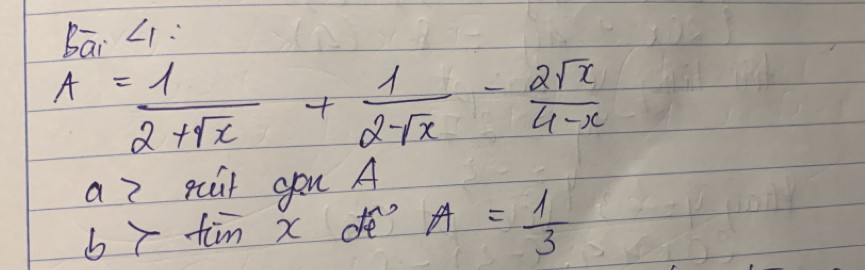 Bài 4:
A = 1/(2+√x) + 1/(2-√x) - 2√x/(4-x)
a> rút gọn A
b> tìm x để A = 1/3